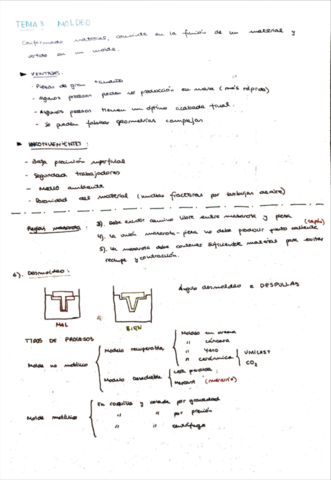 TEMA 3 MOLDEO
Conformado materiales, consiste en la fusión de un material y
vertido en un molde.
VENTAJAS:
- Piezas de gran tamaño
- Algunos procesos permiten producción en masa (más rápido)
- Algunos procesos tienen un óptimo acabado final.
- Se pueden fabricar geometrías complejas
INCONVENIENTES:
- Baja precisión superficial
- Seguridad trabajadores
- Medio ambiente
- Porosidad del material
Reglas mazarota: 3). Debe existir camino libre entre mazarota y pieza
4). La unión mazarota-pieza no debe producir punto caliente
5). La mazarota debe contener suficiente material para evitar
rechupe y contracción.
6). DESMOLDEO:
Ángulo desmoldeo o DESPULLAS
MAL
BIEN
TIPOS DE PROCESOS
Molde no metálico
Modelo recuperable
Moldeo en arena
" cáscara
" Yeso
" cerámica
UNICAST
CO₂
Modelo desechable
Cera perdida
Mercast (mercurio)
Molde metálico
En coquilla y colada por gravedad
" " por presión
" " centrífuga